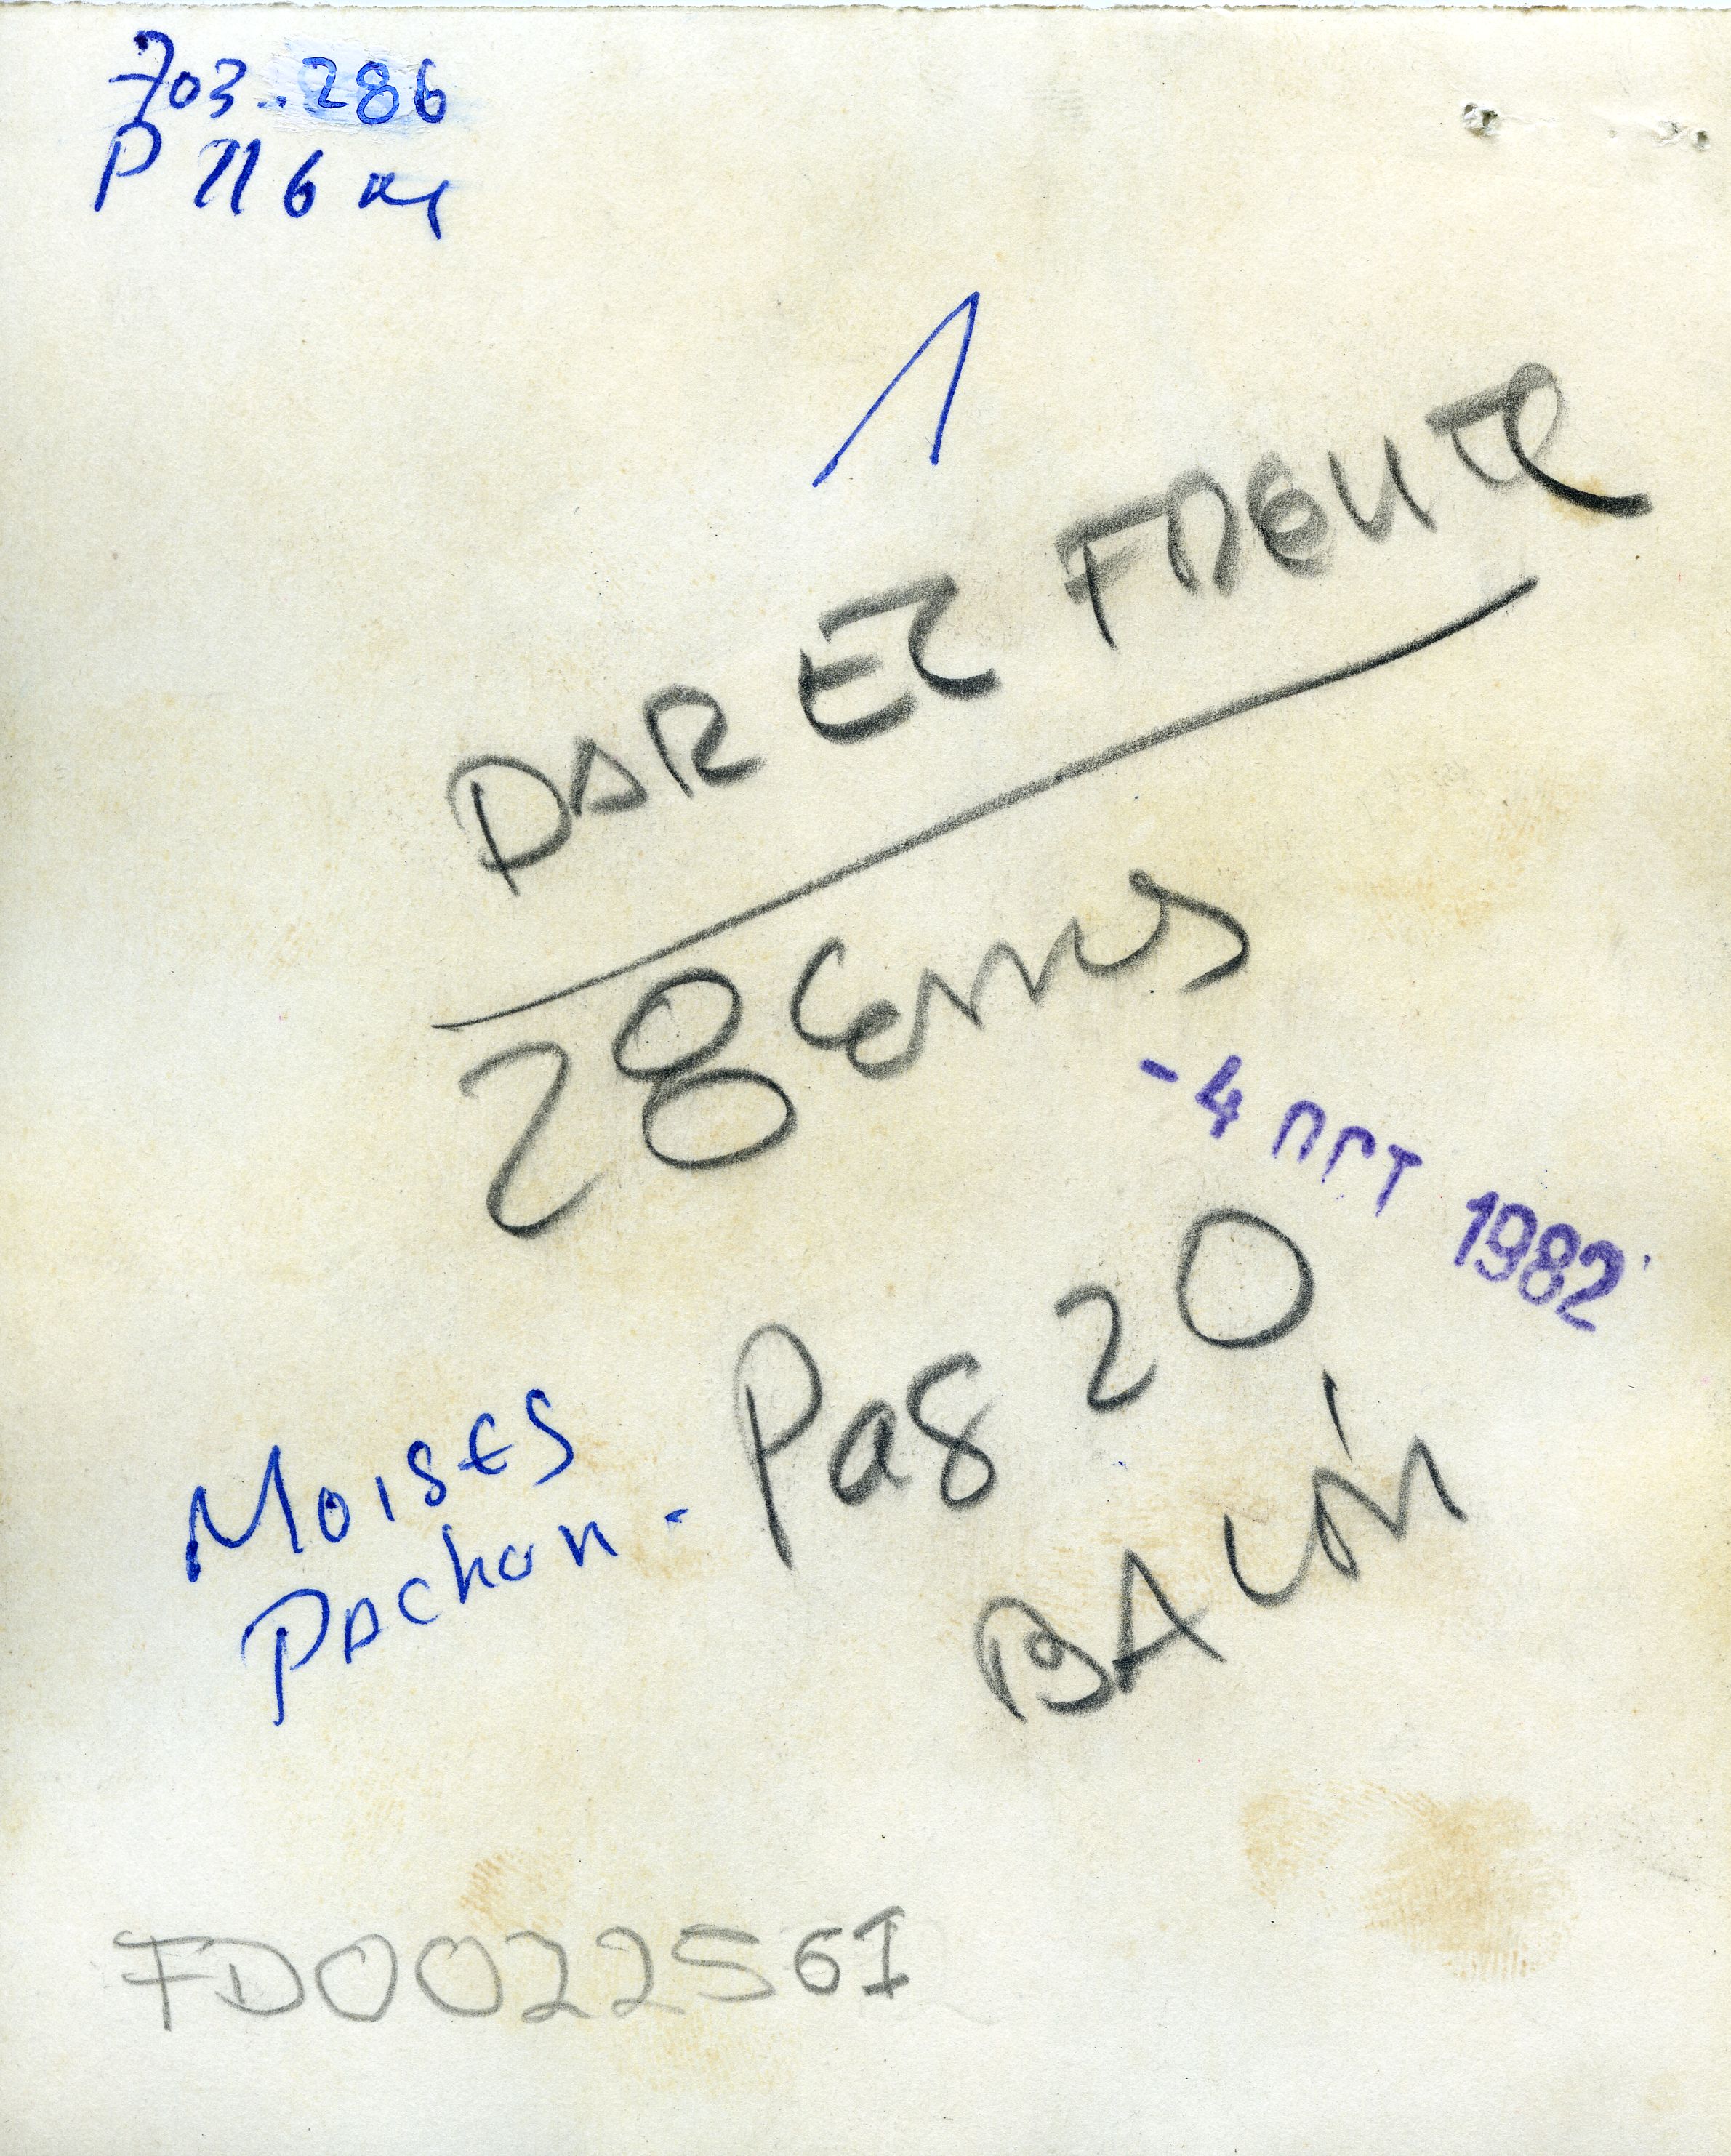 703..286
P 116 m
1
DAR EL FRENTE
28 Cmms
-4 OCT 1982
Pag 20
MOISES
PACHON -
BALÓN
FD0022561